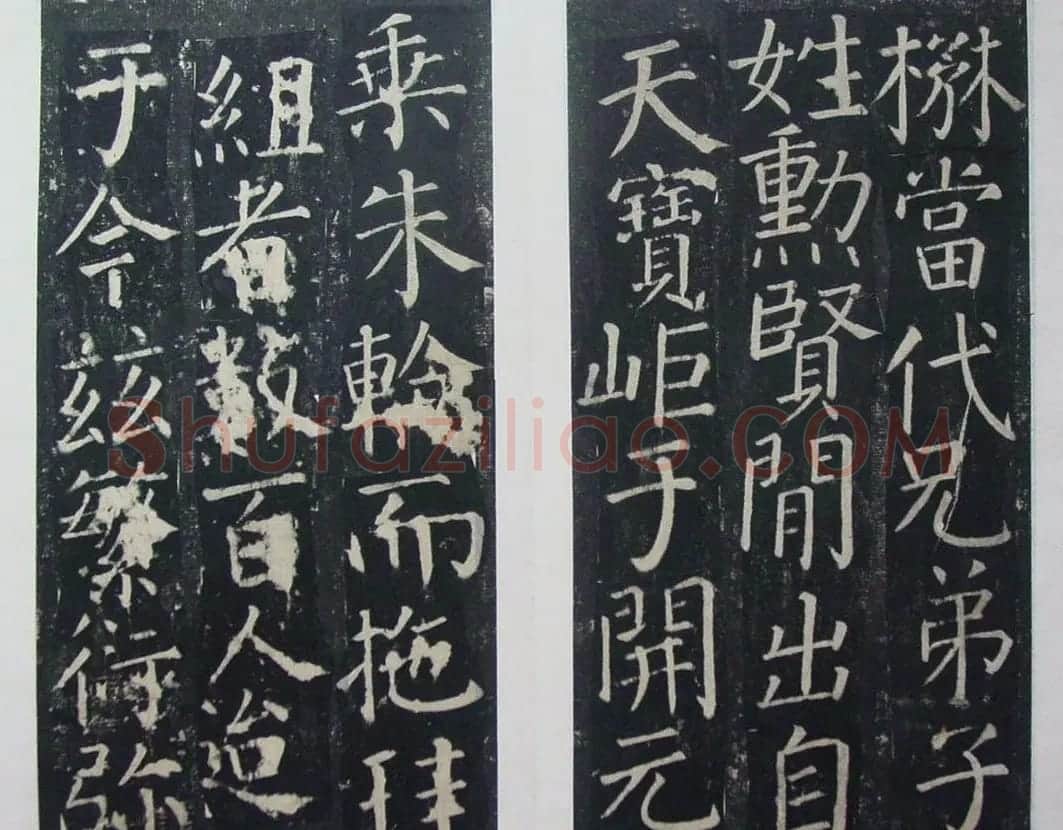 楙當代兄弟子
姓勳賢閒出自
天寶岠于開元
乘朱輪而拖珪
組者數百人迨
于今茲繁衍弥
Shufaziliao.COM